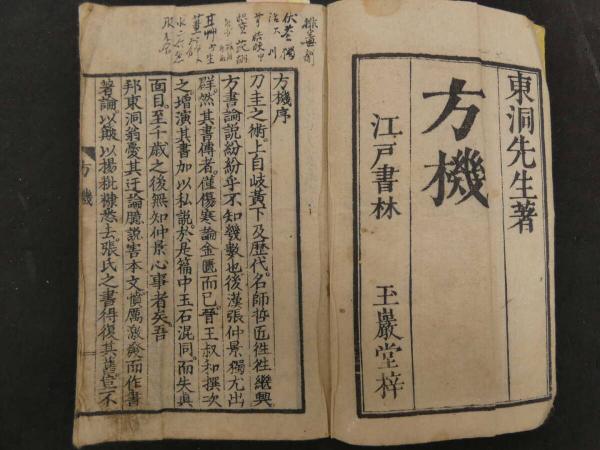 東洞先生著
方機
江戸書林 玉巖堂梓
方機序
刀圭之術。上自岐黃下及歷代。名師哲匠徃徃繼興
方書論説紛紛乎不知幾數也後漢張仲景獨尤出
群。然其書傳者。僅傷寒論金匱而已。晉王叔和撰次
之。增演其書加以私説。於是篇中玉石混同。而失眞
面目。至千歳之後無知仲景心事者矣。吾
邦東洞翁憂其迂論臆説害本文。憤厲激發而作書
著論以皷以揚。粃糠悉去。張氏之書得復其舊。豈不
方機